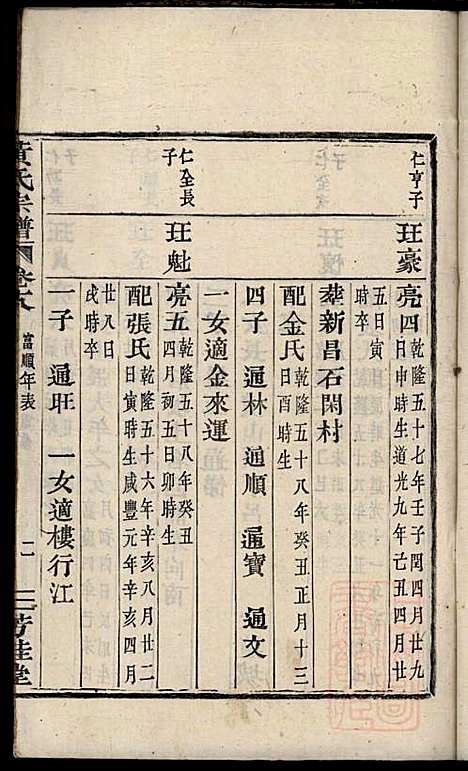 仁亨子
玨豪
亮四
乾隆五十七年壬子閏四月廿九
日申時生道光九年己丑四月廿
五日寅
時卒
葬新昌石閑村
配金氏
乾隆五十八年癸丑正月十三
日酉時生
四子 通林 通順 通寶 通文
一女適金來運
仁全長
子
玨魁
亮五
乾隆五十八年癸丑
四月初五日卯時生
配張氏
乾隆五十六年辛亥八月廿二
日寅時生咸豐元年辛亥四月
廿八日
戌時卒
一子 通旺 一女適樓行江
黃氏宗譜 卷之八 富順年表 二 芳桂堂